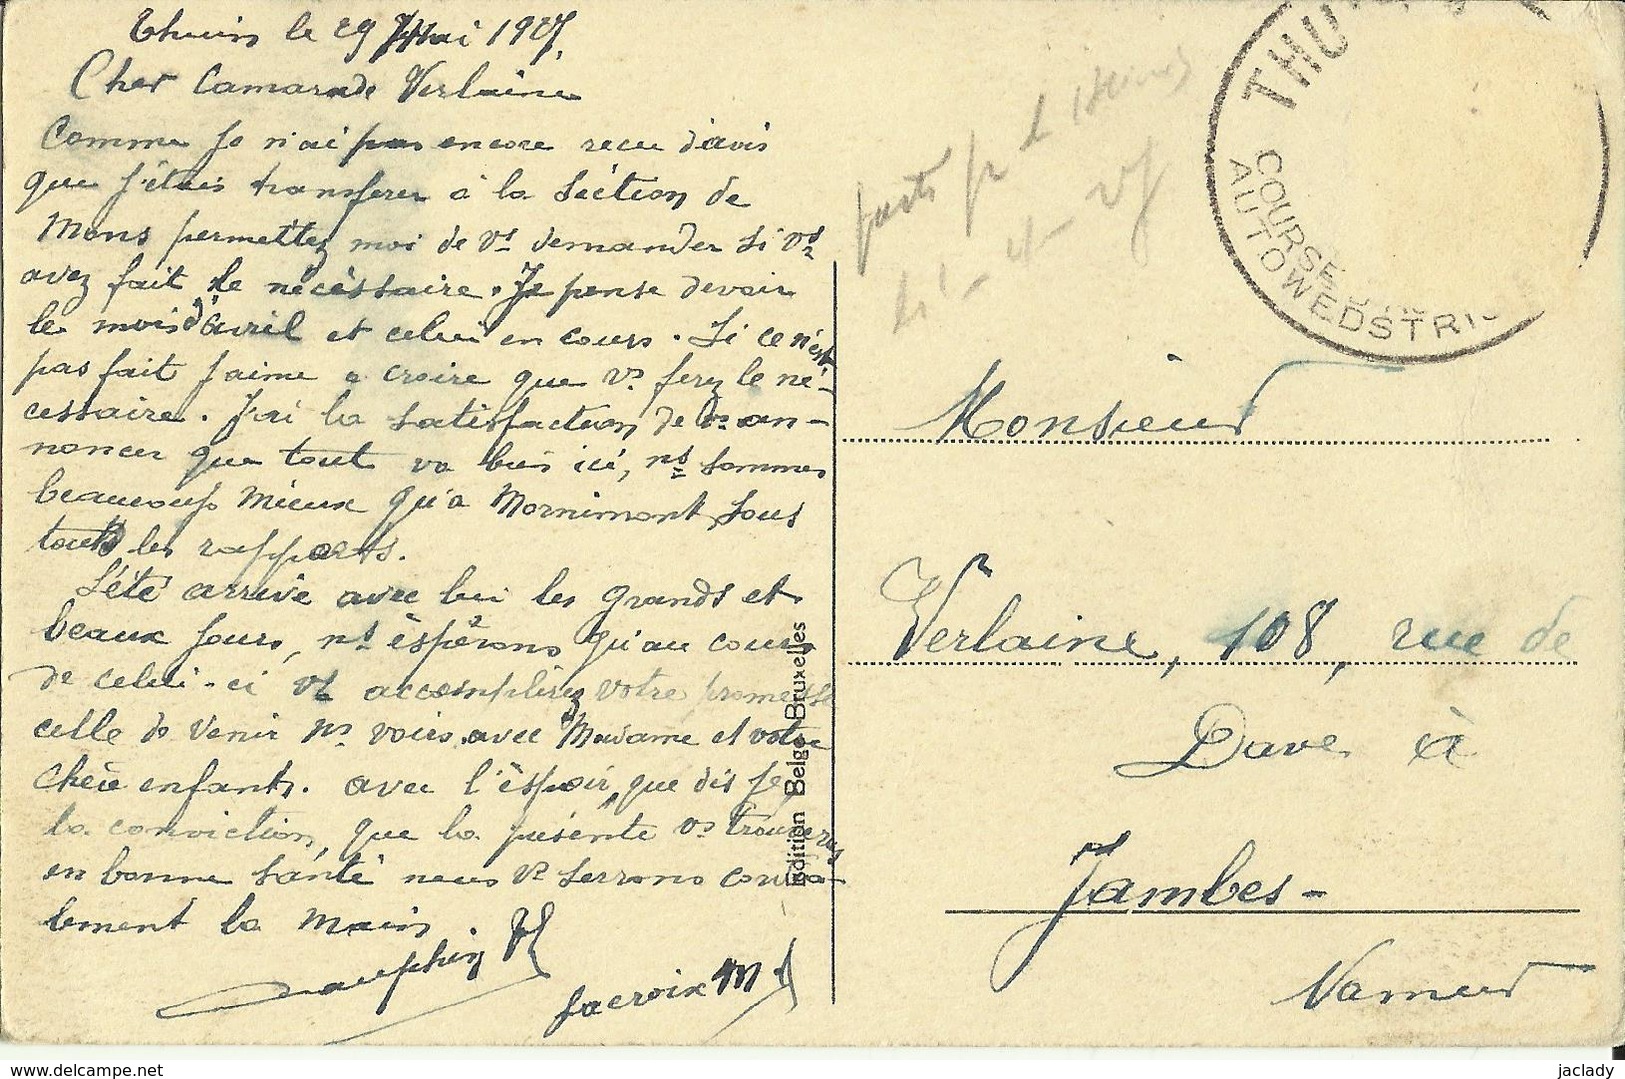 Thuin le 29 Mai 1927.
Cher Camarade Verlaine
Comme je n'ai pas encore recu d'avis
que j'étais transferer à la Séction de
Mons permettez moi de Vs demander si Vs
avez fait le nécèssaire. Je pense devoir
le mois d'avril et celui en cours. Si ce n'est
pas fait j'aime a croire que Vs ferez le né-
cessaire. J'ai la satisfaction de Vs an-
noncer que tout va bien ici, ns sommes
beaucoup mieux qu'a Mornimont sous
tous les rapports.
L'été arrive avec lui les grands et
beaux jours, ns èspérons qu'au cours
de celui-ci Vs accomplirez votre promesse
celle de venir ns voir avec Madame et votre
chère enfants. avec l'èspoir, que dis je,
la conviction, que la présente Vs trouvera
en bonne santé nous Vs serrons cordia-
lement la main.
Dauphin
Lacroix M
Edition Belge Bruxelles
THU
COURSE
AUTOWEDSTRIJ
Monsieur
Verlaine, 108, rue de
Dave à
Jambes-
Namur
jaclady